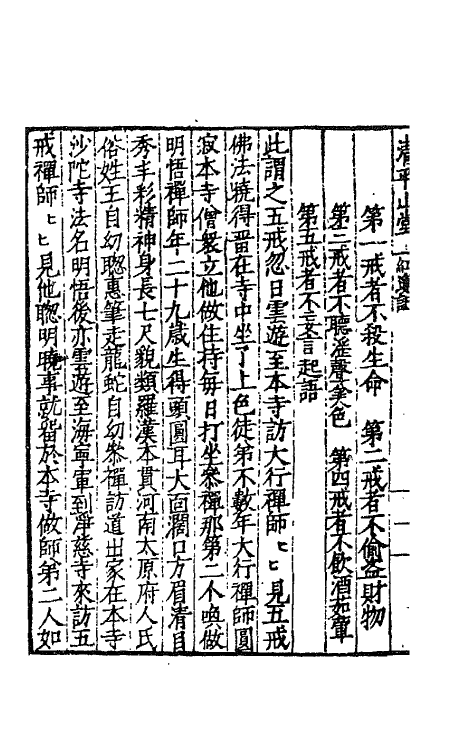 清平山堂 紅蓮記
第一戒者不殺生命　第二戒者不偷盗財物
第三戒者不聽淫聲美色　第四戒者不飲酒茹葷
第五戒者不妄言起語
此謂之五戒忽日雲遊至本寺訪大行禪師ヒヒ見五戒
佛法曉得畱在寺中坐了上色徒弟不數年大行禪師圓
寂本寺僧衆立他做住持每日打坐叅禪那第二个喚做
明悟禪師年二十九歲生得頭圓耳大面濶口方眉清目
秀丰彩精神身長七尺貌類羅漢本貫河南太原府人氏
俗姓王自幼聦惠筆走龍蛇自幼叅禪訪道出家在本寺
沙陀寺法名明悟後亦雲遊至海寧軍到淨慈寺來訪五
戒禪師ヒヒ見他聦明曉事就畱於本寺做師弟二人如